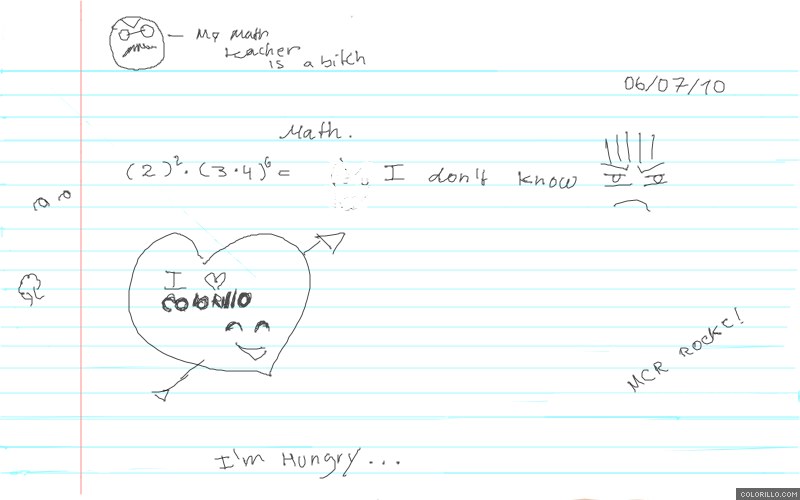 — My Math
teacher
is a bitch
06/07/10
Math.
(2)². (3.4)⁶ = I don't know
I ♡
COLORILLO
MCR ROCKC!
I'm Hungry...
COLORILLO.COM